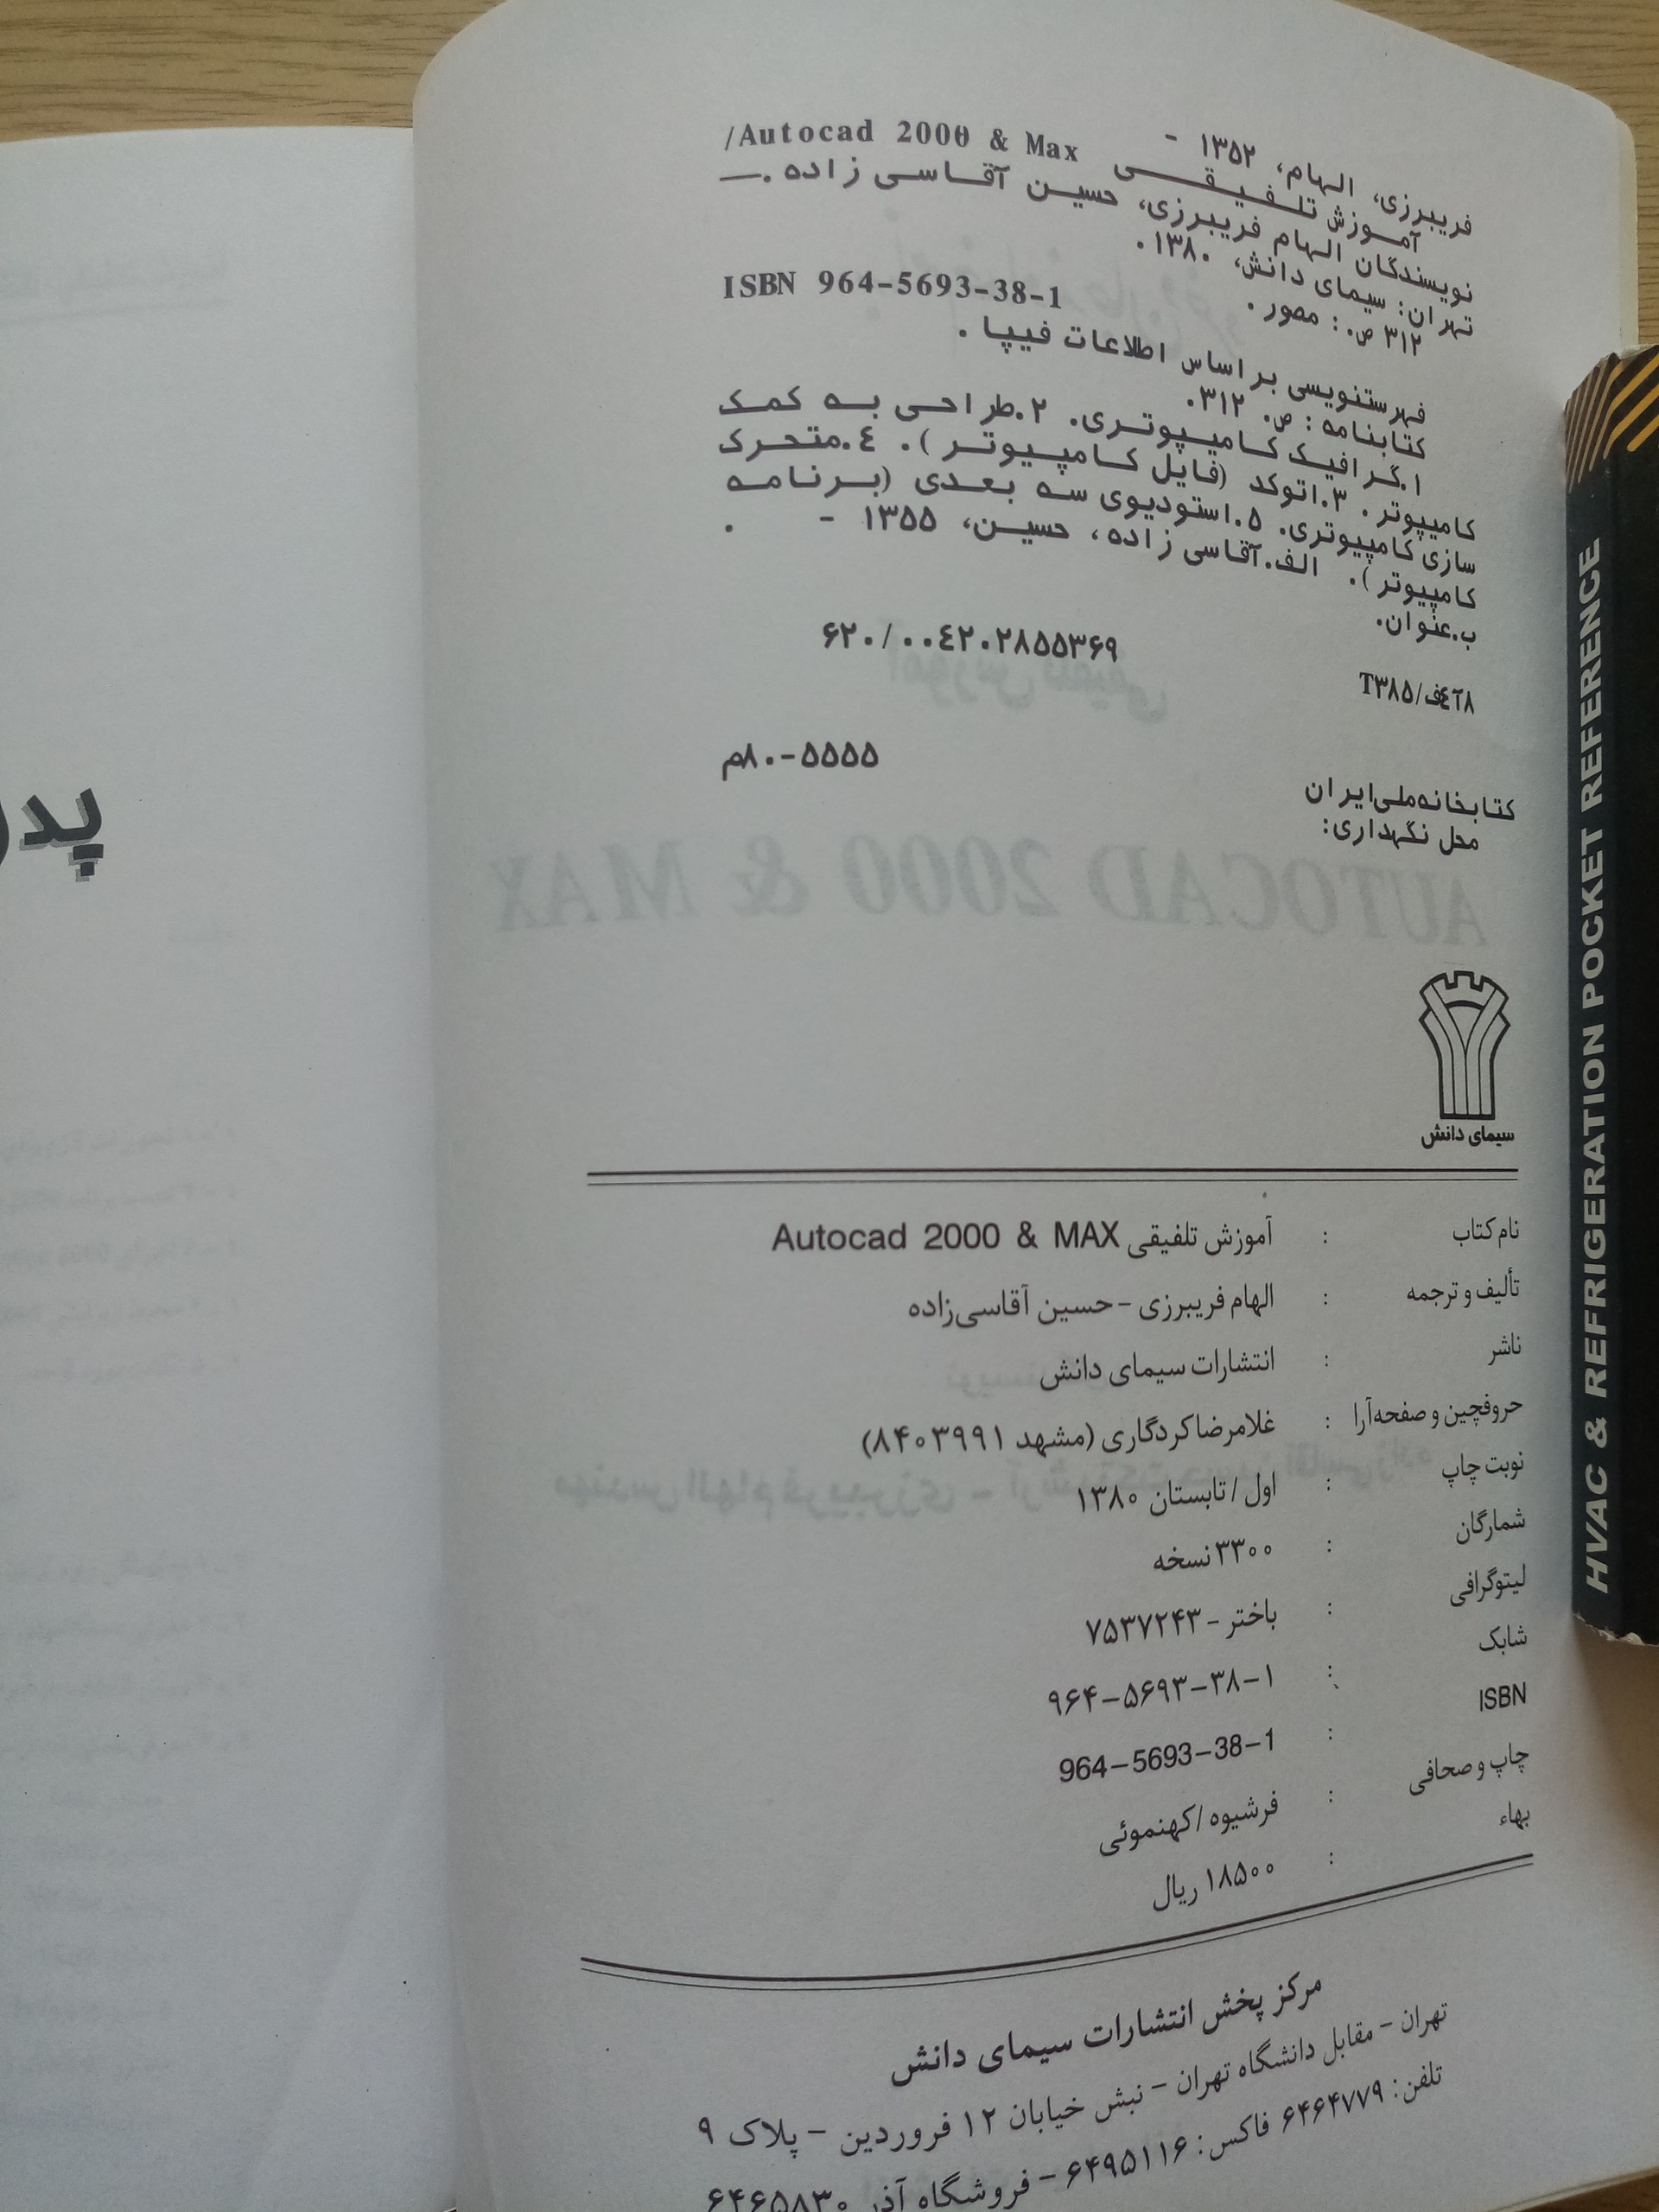 فریبرزی، الهام، ۱۳۵۲ -
آموزش تلفیقی Autocad 2000 & Max/
نویسندگان الهام فریبرزی، حسین آقاسی زاده .—
تهران: سیمای دانش، ۱۳۸۰.
۳۱۲ ص.: مصور.
ISBN 964-5693-38-1
فهرستنویسی براساس اطلاعات فیپا.
کتابنامه: ص. ۳۱۲.
۱.گرافیک کامپیوتری. ۲.طراحی به کمک
کامپیوتر. ۳.اتوکد (فایل کامپیوتر). ۴.متحرک
سازی کامپیوتری. ۵.استودیوی سه بعدی (برنامه
کامپیوتر). الف.آقاسی زاده، حسین، ۱۳۵۵ - .
ب.عنوان.
۶۲۰/۰۰۴۲۰۲۸۵۵۳۶۹
T۳۸۵/ف۴آ۸
م۸۰-۵۵۵۵
کتابخانه ملی ایران
محل نگهداری:
سیمای دانش
نام کتاب : آموزش تلفیقی Autocad 2000 & MAX
تألیف و ترجمه : الهام فریبرزی - حسین آقاسی‌زاده
ناشر : انتشارات سیمای دانش
حروفچین و صفحه‌آرا : غلامرضا کردگاری (مشهد ۸۴۰۳۹۹۱)
نوبت چاپ : اول / تابستان ۱۳۸۰
شمارگان : ۳۳۰۰ نسخه
لیتوگرافی : باختر - ۷۵۳۷۲۴۳
شابک : ۹۶۴-۵۶۹۳-۳۸-۱
ISBN : 964-5693-38-1
چاپ و صحافی : فرشیوه / کهنموئی
بهاء : ۱۸۵۰۰ ریال
مرکز پخش انتشارات سیمای دانش
تهران - مقابل دانشگاه تهران - نبش خیابان ۱۲ فروردین - پلاک ۹
تلفن: ۶۴۶۴۷۷۹ فاکس: ۶۴۹۵۱۱۶ - فروشگاه آذر ۶۴۶۵۸۳۰
HVAC & REFRIGERATION POCKET REFERENCE